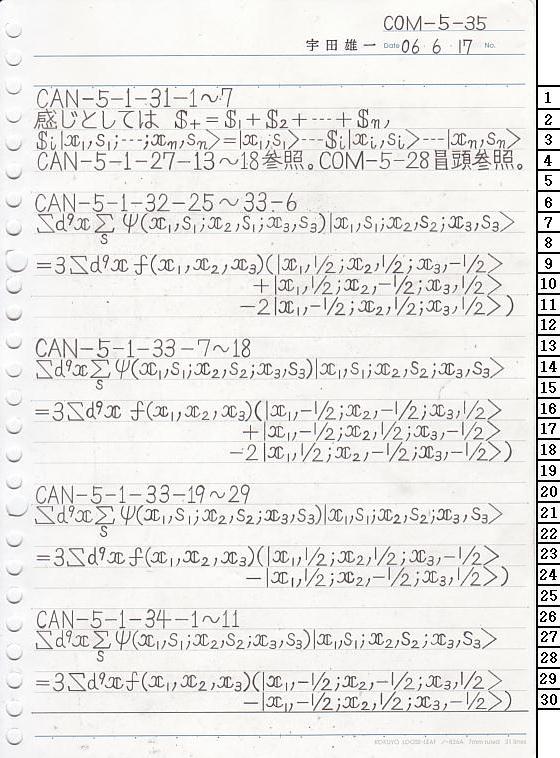 COM-5-35
宇田雄一 Date 06・6・17 No.
CAN-5-1-31-1～7
感じとしては $₊=$₁+$₂+---+$ₙ,
$ᵢ|x₁,s₁;---;xₙ,sₙ>=|x₁,s₁>---$ᵢ|xᵢ,sᵢ>---|xₙ,sₙ>
CAN-5-1-27-13～18参照。COM-5-28冒頭参照。
CAN-5-1-32-25～33-6
∑d⁹x∑ψ(x₁,s₁;x₂,s₁;x₃,s₃)|x₁,s₁;x₂,s₂;x₃,s₃>
s
=3∑d⁹x f(x₁,x₂,x₃)(|x₁,1/2;x₂,1/2;x₃,-1/2>
+|x₁,1/2;x₂,-1/2;x₃,1/2>
-2|x₁,-1/2;x₂,1/2;x₃,1/2>)
CAN-5-1-33-7～18
∑d⁹x∑ψ(x₁,s₁;x₂,s₂;x₃,s₃)|x₁,s₁;x₂,s₂;x₃,s₃>
s
=3∑d⁹x f(x₁,x₂,x₃)(|x₁,-1/2;x₂,-1/2;x₃,1/2>
+|x₁,-1/2;x₂,1/2;x₃,-1/2>
-2|x₁,1/2;x₂,-1/2;x₃,-1/2>)
CAN-5-1-33-19～29
∑d⁹x∑ψ(x₁,s₁;x₂,s₂;x₃,s₃)|x₁,s₁;x₂,s₂;x₃,s₃>
s
=3∑d⁹x f(x₁,x₂,x₃)(|x₁,1/2;x₂,1/2;x₃,-1/2>
-|x₁,1/2;x₂,-1/2;x₃,1/2>)
CAN-5-1-34-1～11
∑d⁹x∑ψ(x₁,s₁;x₂,s₂;x₃,s₃)|x₁,s₁;x₂,s₂;x₃,s₃>
s
=3∑d⁹x f(x₁,x₂,x₃)(|x₁,-1/2;x₂,-1/2;x₃,1/2>
-|x₁,-1/2;x₂,1/2;x₃,-1/2>)
KOKUYO LOOSE-LEAF ノ-826A 7mm ruled 31 lines
1
2
3
4
5
6
7
8
9
10
11
12
13
14
15
16
17
18
19
20
21
22
23
24
25
26
27
28
29
30